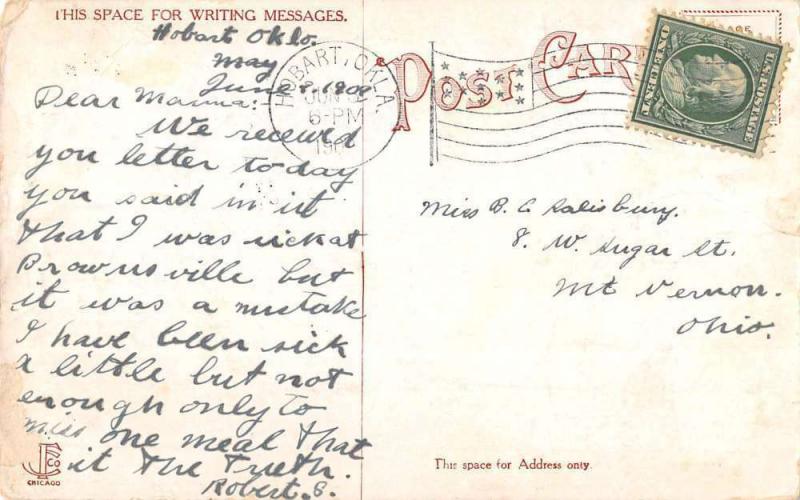 THIS SPACE FOR WRITING MESSAGES.
Hobart Oklo.
May
June 8. 1909
Dear Mama:
We receved
you letter today
you said in it
that I was sick at
Brownsville but
it was a mistake
I have been sick
a little but not
enough only to
miss one meal that
it the Trueth.
Robert. S.
CO
CHICAGO
HOBART, OKLA.
JUN
6-PM
190
POST CARD
U.S. POSTAGE
ONE CENT
Miss B. C. Salisbury.
8. W. Sugar St.
Mt Vernon.
Ohio.
This space for Address only.